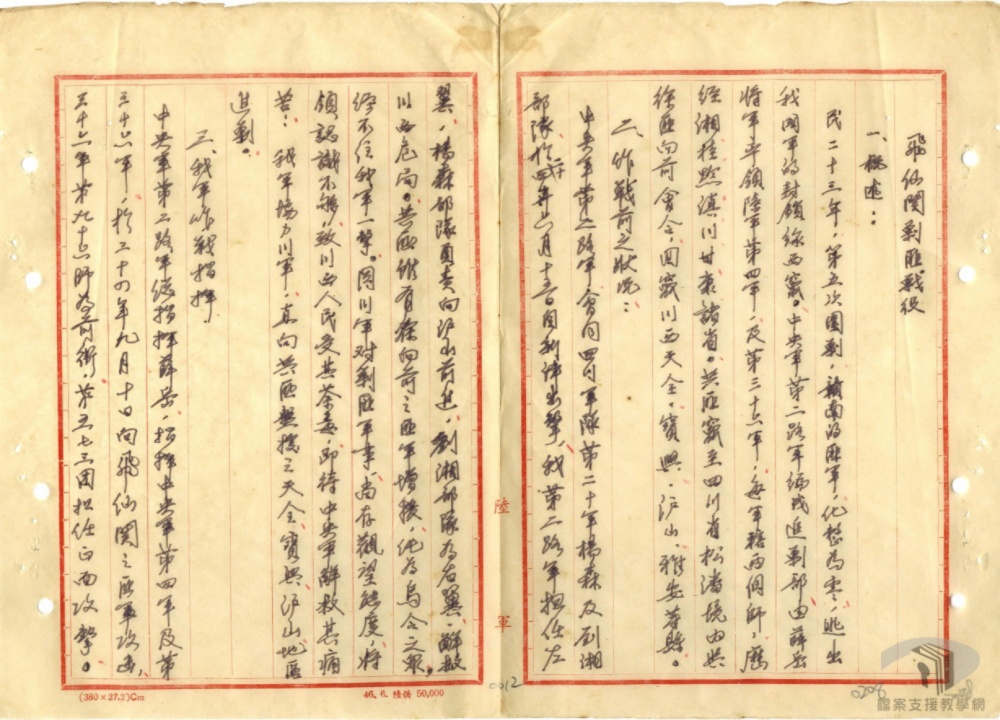 飛仙関剿匪戰役
一、概述：
民二十三年，第五次圍剿，贛南的匪軍，化整為零，逃出
我國軍的封鎖線西竄。中央軍第二路軍編成追剿部由薛岳
將軍率領陸軍第四軍，及第三十六軍，每軍轄兩個師，歷
經湘桂黔滇川甘表諸省。共匪竄至四川省松潘境內與
徐匪向前會合，回竄川西天全、寶興、泸山、雅安等縣。
二、作戰前之狀況：
中央軍第二路軍會同四川軍隊第二十軍楊森及劉湘
部隊於二十四年六月十五日自新津出擊，我第二路軍担任左
翼，楊森部隊負責向泸山前進，劉湘部隊為右翼，解救
川西危局。共匪雖有徐向前之匪軍增援，純為烏合之眾，
經不住我軍一擊。因川軍对剿匪軍事，尚存觀望態度，將
領認識不夠，致川西人民受其荼毒，即待中央軍解救其痛
苦；我軍協力川軍，直向共匪盤據之天全、寶興、泸山地區
進剿。
三、我軍作戰指揮
中央軍第二路軍總指揮薛岳，指揮中央軍第四軍及第
三十六軍，於二十四年九月十四向飛仙関之匪軍攻击，
三十六軍第九十六師為前衛，第五七三團担任正面攻擊。
陸軍
(380×27.2)Cm
46. 6. 陸供 50,000
0012
0208
檔案支援教學網